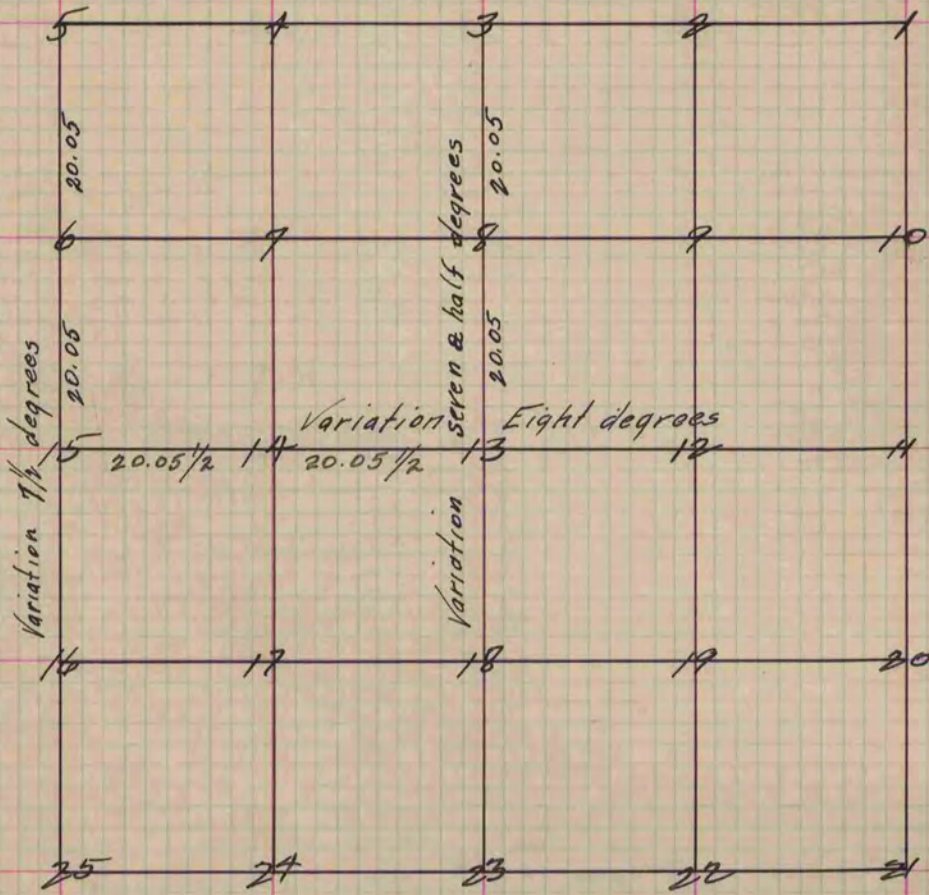 5 4 3 2 1
20.05 20.05
6 7 8 9 10
20.05 20.05
Variation 7½ degrees
Variation Seven & half degrees
Variation Eight degrees
15 14 13 12 11
20.05 ½ 20.05 ½
16 17 18 19 20
25 24 23 22 21